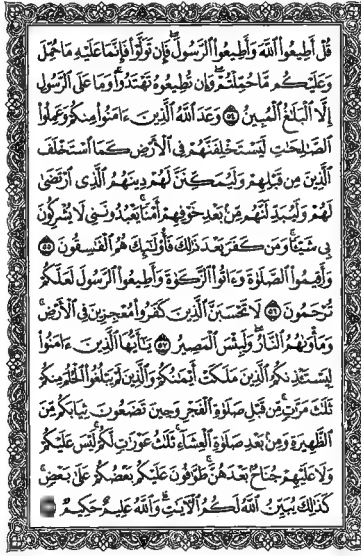 قُلْ أَطِيعُوا۟ ٱللَّهَ وَأَطِيعُوا۟ ٱلرَّسُولَ ۖ فَإِن تَوَلَّوْا۟ فَإِنَّمَا عَلَيْهِ مَا حُمِّلَ
وَعَلَيْكُم مَّا حُمِّلْتُمْ ۖ وَإِن تُطِيعُوهُ تَهْتَدُوا۟ ۚ وَمَا عَلَى ٱلرَّسُولِ
إِلَّا ٱلْبَلَٰغُ ٱلْمُبِينُ ٥٤ وَعَدَ ٱللَّهُ ٱلَّذِينَ ءَامَنُوا۟ مِنكُمْ وَعَمِلُوا۟
ٱلصَّٰلِحَٰتِ لَيَسْتَخْلِفَنَّهُمْ فِى ٱلْأَرْضِ كَمَا ٱسْتَخْلَفَ
ٱلَّذِينَ مِن قَبْلِهِمْ وَلَيُمَكِّنَنَّ لَهُمْ دِينَهُمُ ٱلَّذِى ٱرْتَضَىٰ
لَهُمْ وَلَيُبَدِّلَنَّهُم مِّنۢ بَعْدِ خَوْفِهِمْ أَمْنًا ۚ يَعْبُدُونَنِى لَا يُشْرِكُونَ
بِى شَيْـًٔا ۚ وَمَن كَفَرَ بَعْدَ ذَٰلِكَ فَأُو۟لَٰٓئِكَ هُمُ ٱلْفَٰسِقُونَ ٥٥
وَأَقِيمُوا۟ ٱلصَّلَوٰةَ وَءَاتُوا۟ ٱلزَّكَوٰةَ وَأَطِيعُوا۟ ٱلرَّسُولَ لَعَلَّكُمْ
تُرْحَمُونَ ٥٦ لَا تَحْسَبَنَّ ٱلَّذِينَ كَفَرُوا۟ مُعْجِزِينَ فِى ٱلْأَرْضِ ۚ
وَمَأْوَىٰهُمُ ٱلنَّارُ ۖ وَلَبِئْسَ ٱلْمَصِيرُ ٥٧ يَٰٓأَيُّهَا ٱلَّذِينَ ءَامَنُوا۟
لِيَسْتَـْٔذِنكُمُ ٱلَّذِينَ مَلَكَتْ أَيْمَٰنُكُمْ وَٱلَّذِينَ لَمْ يَبْلُغُوا۟ ٱلْحُلُمَ مِنكُمْ
ثَلَٰثَ مَرَّٰتٍ ۚ مِّن قَبْلِ صَلَوٰةِ ٱلْفَجْرِ وَحِينَ تَضَعُونَ ثِيَابَكُم مِّنَ
ٱلظَّهِيرَةِ وَمِنۢ بَعْدِ صَلَوٰةِ ٱلْعِشَآءِ ۚ ثَلَٰثُ عَوْرَٰتٍ لَّكُمْ ۚ لَيْسَ عَلَيْكُمْ
وَلَا عَلَيْهِمْ جُنَاحٌۢ بَعْدَهُنَّ ۚ طَوَّٰفُونَ عَلَيْكُم بَعْضُكُمْ عَلَىٰ بَعْضٍ ۚ
كَذَٰلِكَ يُبَيِّنُ ٱللَّهُ لَكُمُ ٱلْءَايَٰتِ ۗ وَٱللَّهُ عَلِيمٌ حَكِيمٌ